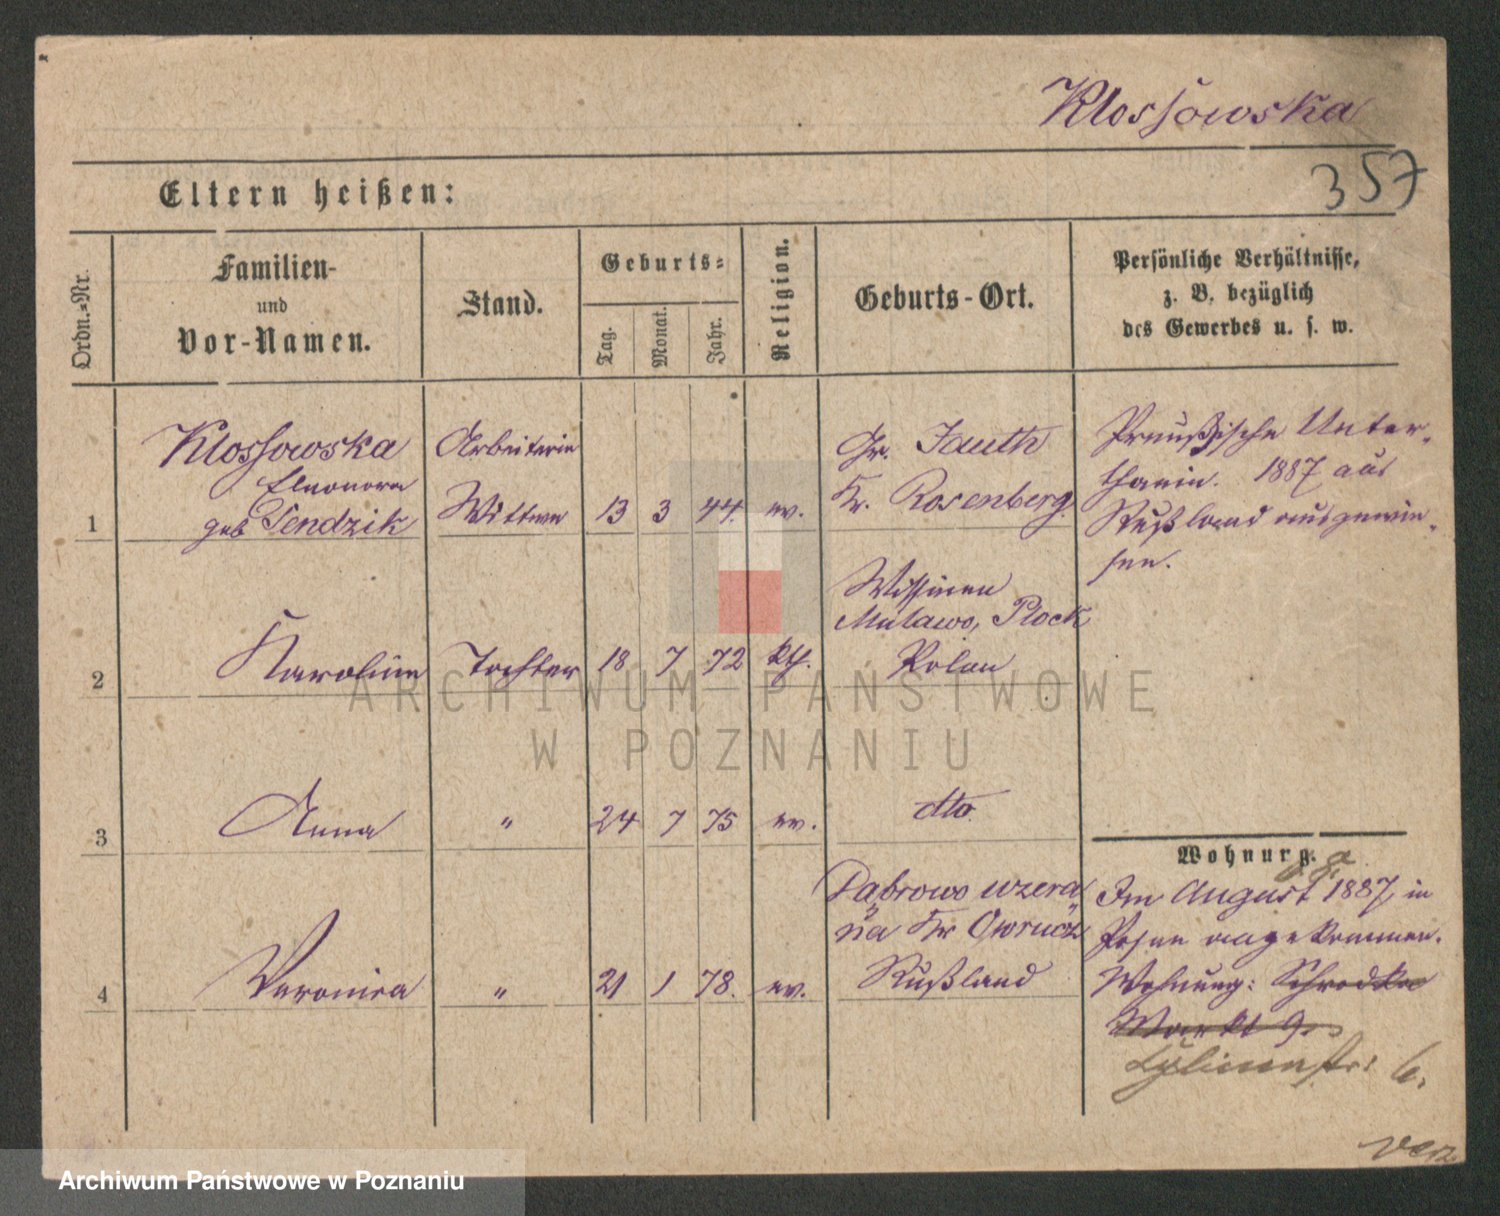 Klossowska
357
Eltern heißen:
Ordn.-Nr.
Familien-
und
Vor-Namen.
Stand.
Geburts-
Tag.
Monat.
Jahr.
Religion.
Geburts-Ort.
Persönliche Verhältnisse,
z. B. bezüglich
des Gewerbes u. s. w.
1
Klossowska
Eleonora
geb Sendzik
Arbeiterin
Wittwe
13 3 44. ev.
Gr. Jauth
Kr. Rosenberg
Preußische Unter-
thanin. 1887 aus
Rußland ausgewie-
sen.
2
Karoline
Tochter
18 7 72 kth.
Wissinen
Mulawo, Plock
Polen
3
Anna
"
24 7 75 ev.
dto.
4
Veronica
"
21 1 78. ev.
Dąbrowo
na Kr Owrucz
Rußland
Wohnung.
Im August 1887 in
Posen angekommen.
Wohnung: Schrodka
Markt 9.
6.
ARCHIWUM PAŃSTWOWE
W POZNANIU
Archiwum Państwowe w Poznaniu